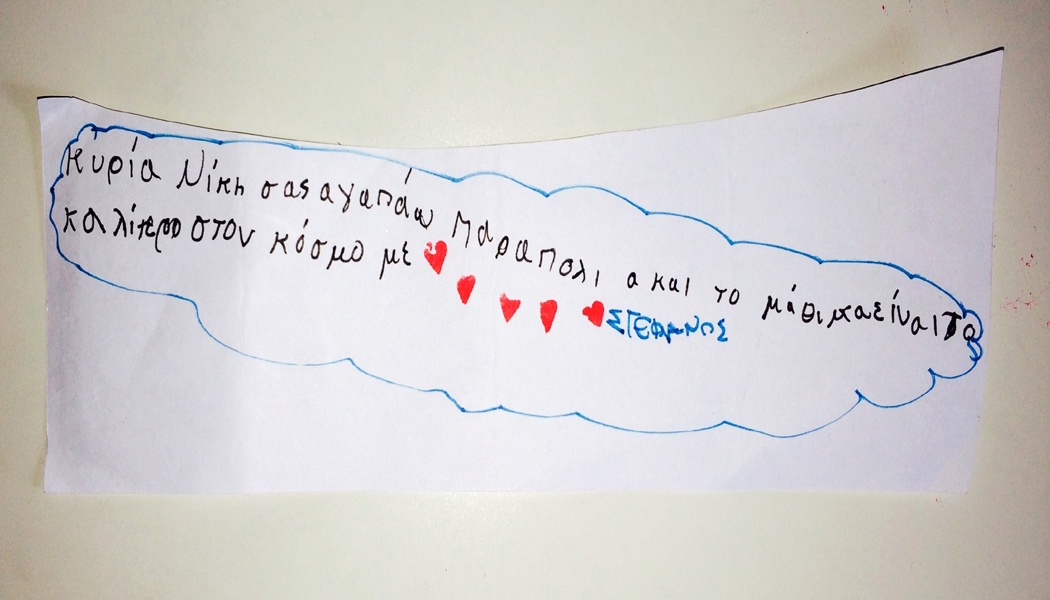 Κύρία Νίκη σας αγαπάω Πάρα πολι α και το μάθιμα είναι το
καλίτερο στον κόσμο με
ΣΤΕΦΑΝΟΣ